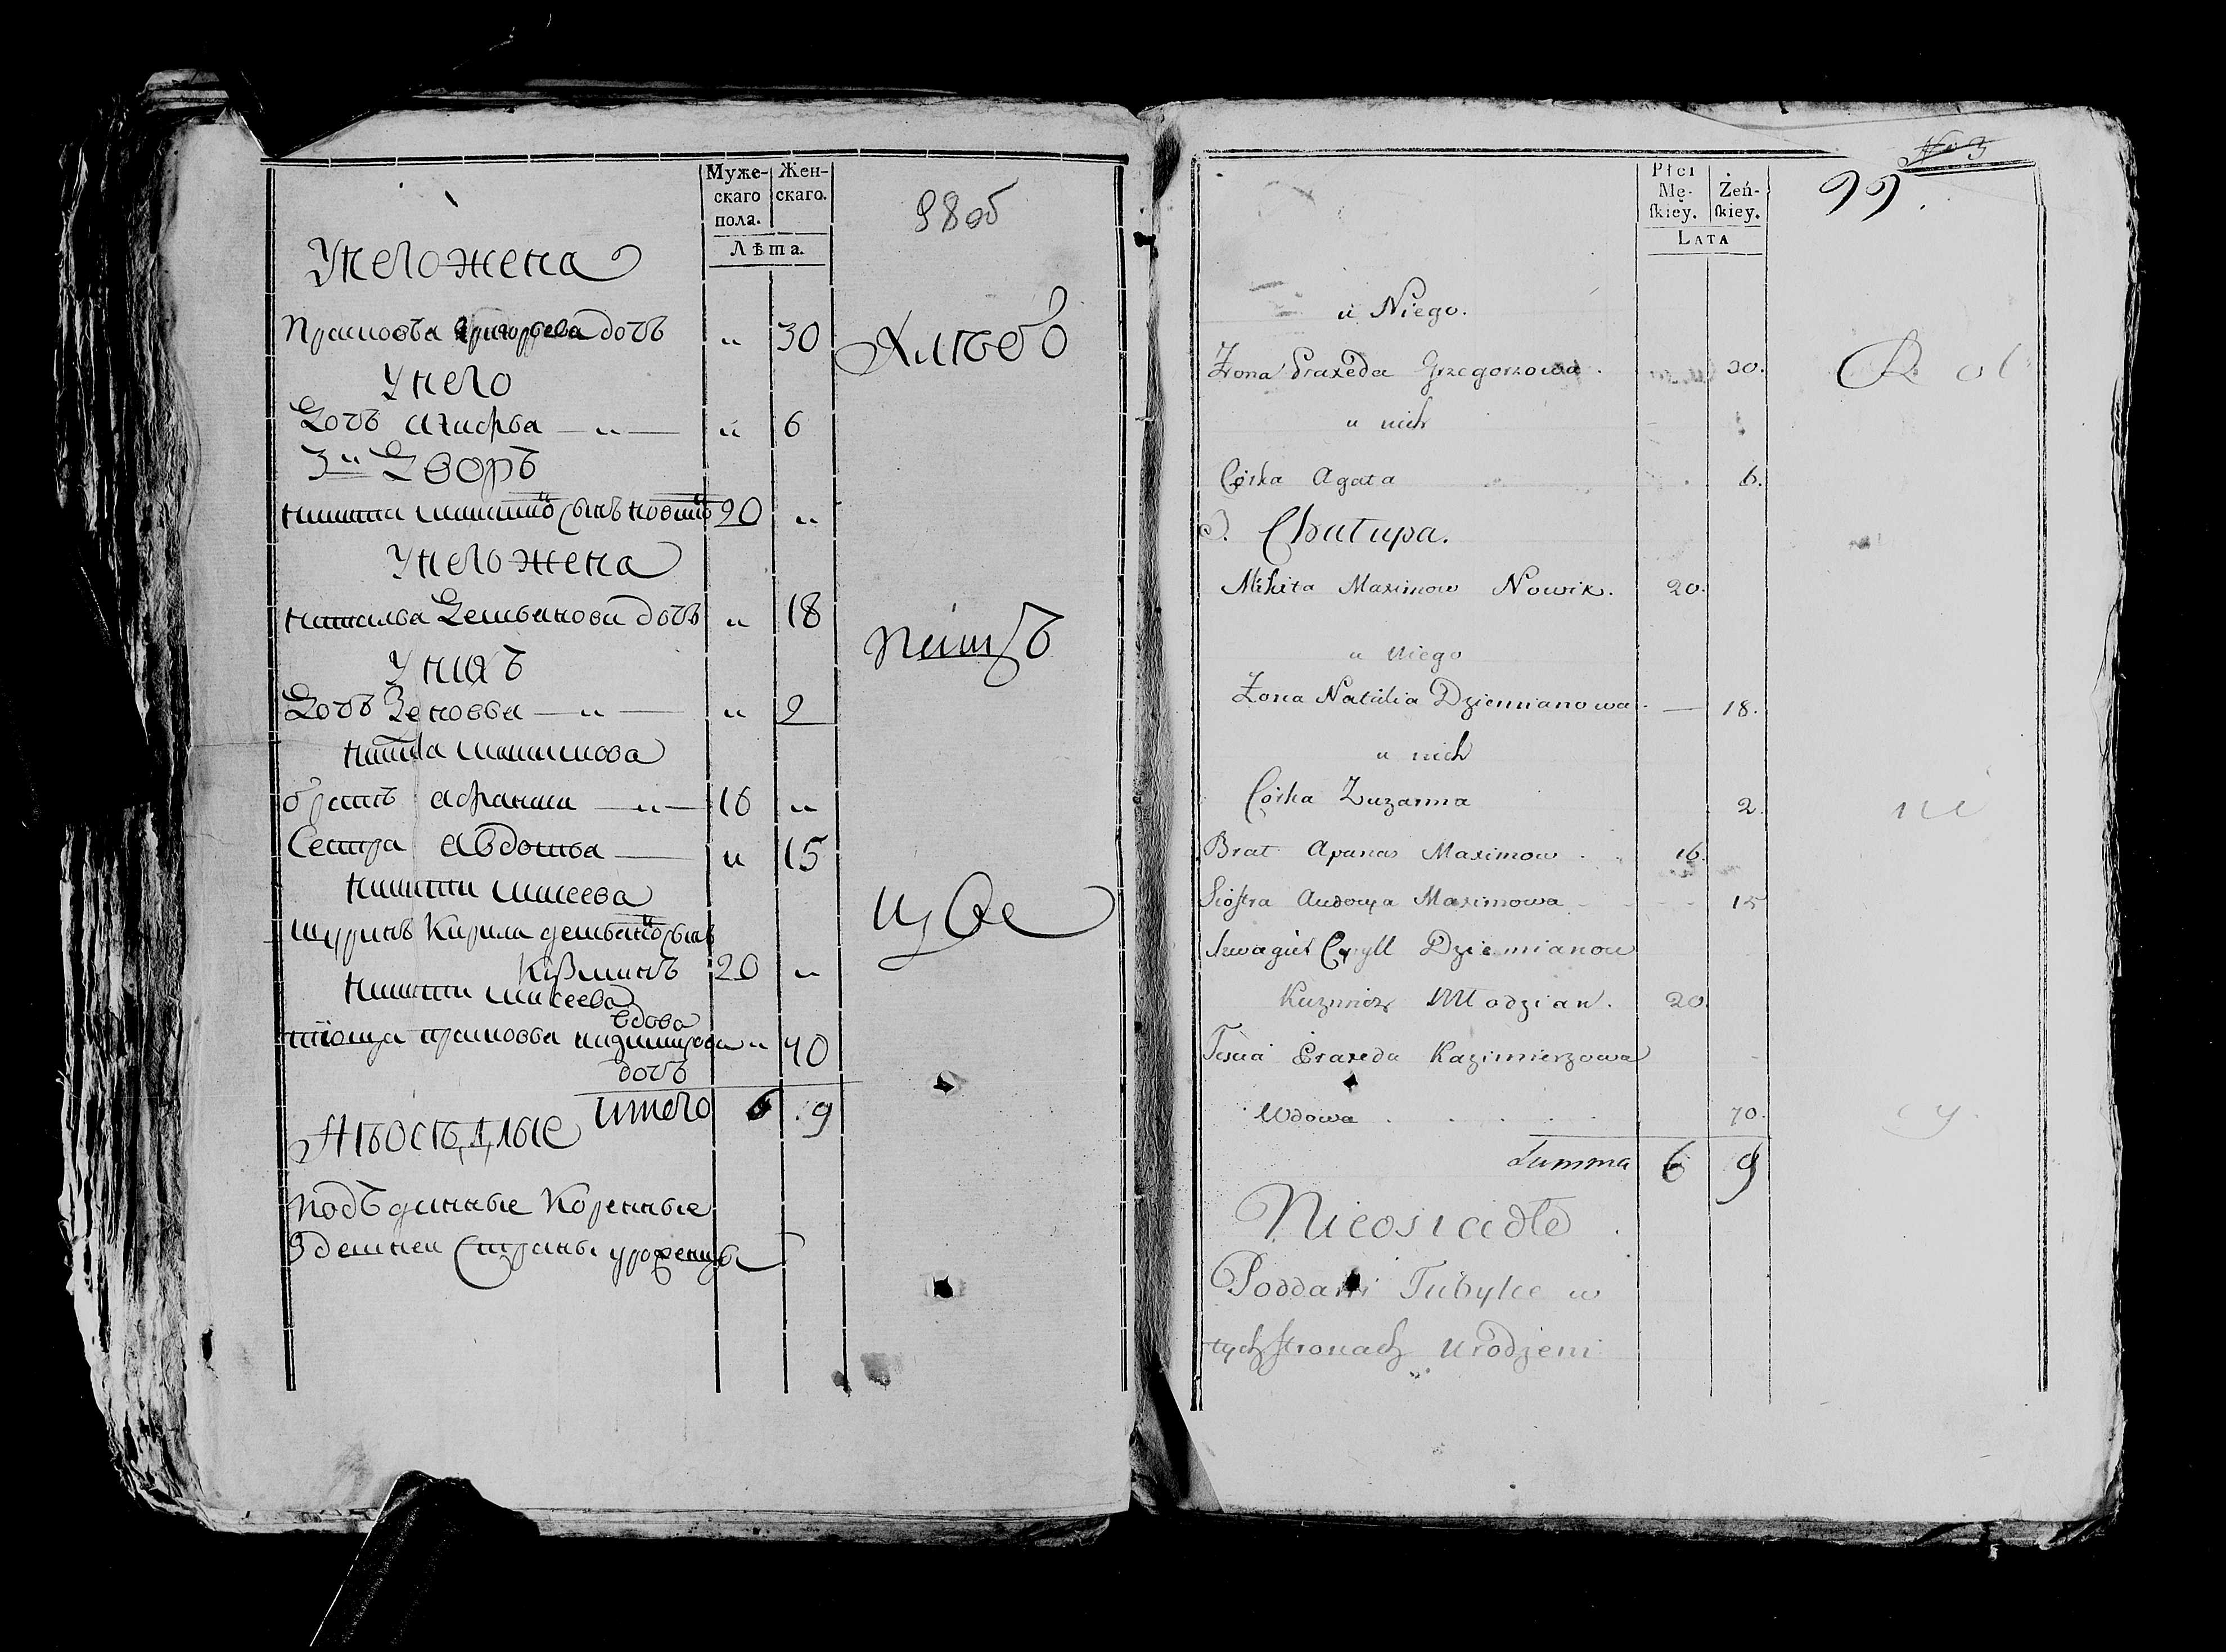 Муже- Жен-
скаго скаго.
пола.
Лѣта.
98 об
У него жена
Прасковья Григорьева дочь " 30
Хлѣбо
У него
Дочь Агафья — " — " 6
3й Дворъ
Никита Максимовъ сынъ Новикъ 20 "
У него жена
Наталья Демьянова дочь " 18
пашъ
У нихъ
Дочь Зеновья — " — " 2
Никита Максимова
братъ Афанасий — " — 16 "
Сестра Авдотья — " 15
Никиты
цы
шуринъ Кирила Демьяновъ сынъ
20 "
Никиты
вдова
тіоща Прасковья " 70
дочь
Итого 6 . 9
Неоседлые
Подъданные Коренные
Здешней Страны уроженцы
No 3
Płci
Mę- Żeń-
skiey. skiey.
LATA
99.
u Niego.
Żona Praxeda Grzegorzowa . 30.
Rol
u nich
Córka Agata 6.
3. Chałupa.
Mikita Maximow Nowik. 20.
u niego
Żona Natalia Dziemianowa . — 18.
u nich
Córka Zuzanna 2.
ni
Brat Apanas Maximow . . 16.
Siostra Audocya Maximowa 15
Szwagier Cyryll Dziemianow
Młodzian. 20.
Teścia Praxeda Kazimierzowa
Wdowa . . . . 70.
cy.
Summa 6 9
Nieosiadłe .
Poddani Tubylce w
tych stronach urodzeni